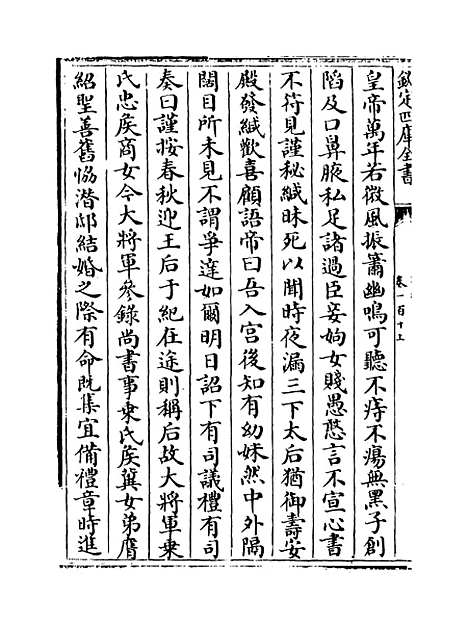 欽定四庫全書
卷一百十上
皇帝萬年若微風振簫幽鳴可聽不痔不瘍無黑子創
陷及口鼻腋私足諸過臣妾姁女賤愚憨言不宣心書
不符見謹秘緘昧死以聞時夜漏三下太后猶御壽安
殿發緘歡喜顧語帝曰吾入宫後知有幼妹然中外隔
闊目所未見不謂爭達如爾明日詔下有司議禮有司
奏曰謹按春秋迎王后于紀在途則稱后故大將軍乗
氏忠矦商女今大將軍參錄尚書事乗氏矦冀女弟膺
紹聖善舊恊潜邸結婚之際有命既集宜備禮章時進